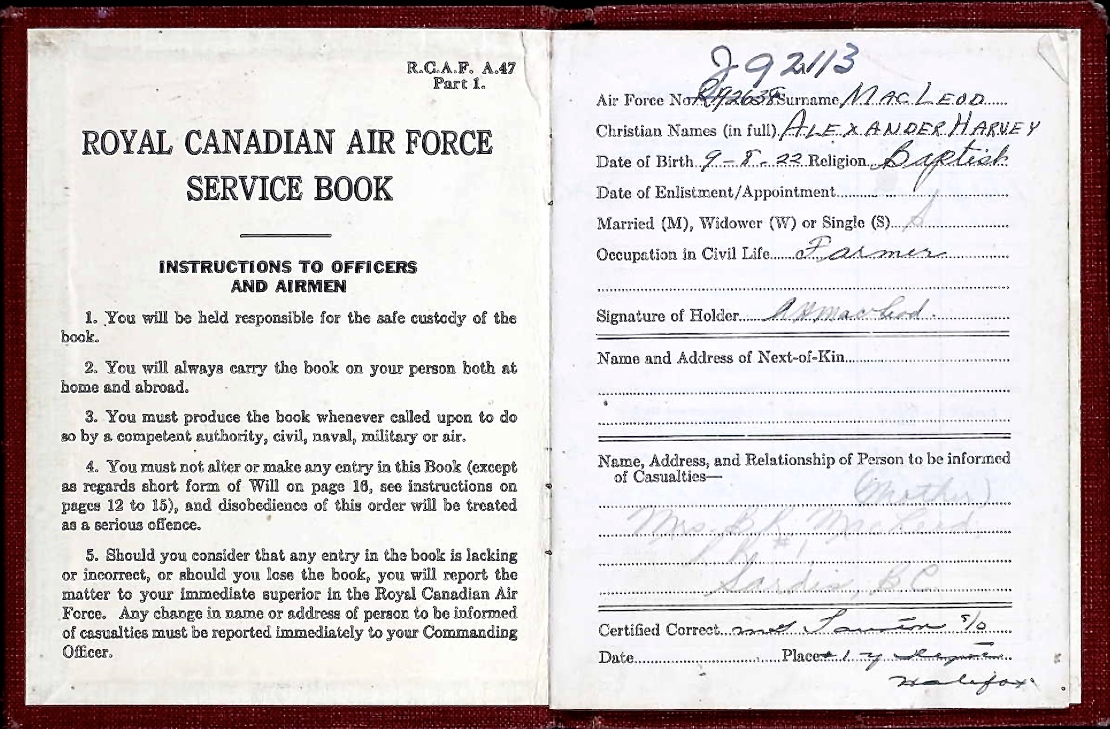 R.C.A.F. A.47
Part 1.
ROYAL CANADIAN AIR FORCE
SERVICE BOOK
INSTRUCTIONS TO OFFICERS
AND AIRMEN
1. You will be held responsible for the safe custody of the
book.
2. You will always carry the book on your person both at
home and abroad.
3. You must produce the book whenever called upon to do
so by a competent authority, civil, naval, military or air.
4. You must not alter or make any entry in this Book (except
as regards short form of Will on page 16, see instructions on
pages 12 to 15), and disobedience of this order will be treated
as a serious offence.
5. Should you consider that any entry in the book is lacking
or incorrect, or should you lose the book, you will report the
matter to your immediate superior in the Royal Canadian Air
Force. Any change in name or address of person to be informed
of casualties must be reported immediately to your Commanding
Officer.
J92113
Air Force No. Surname MACLEOD
Christian Names (in full) ALEXANDER HARVEY
Date of Birth 9-8-22 Religion Baptist
Date of Enlistment/Appointment
Married (M), Widower (W) or Single (S) S
Occupation in Civil Life Farmer
Signature of Holder A H MacLeod
Name and Address of Next-of-Kin
Name, Address, and Relationship of Person to be informed
of Casualties—
(Mother)
Mrs. MacLeod
#1
Sardis, BC
Certified Correct S/O
Date Place #1 Y Depot
Halifax